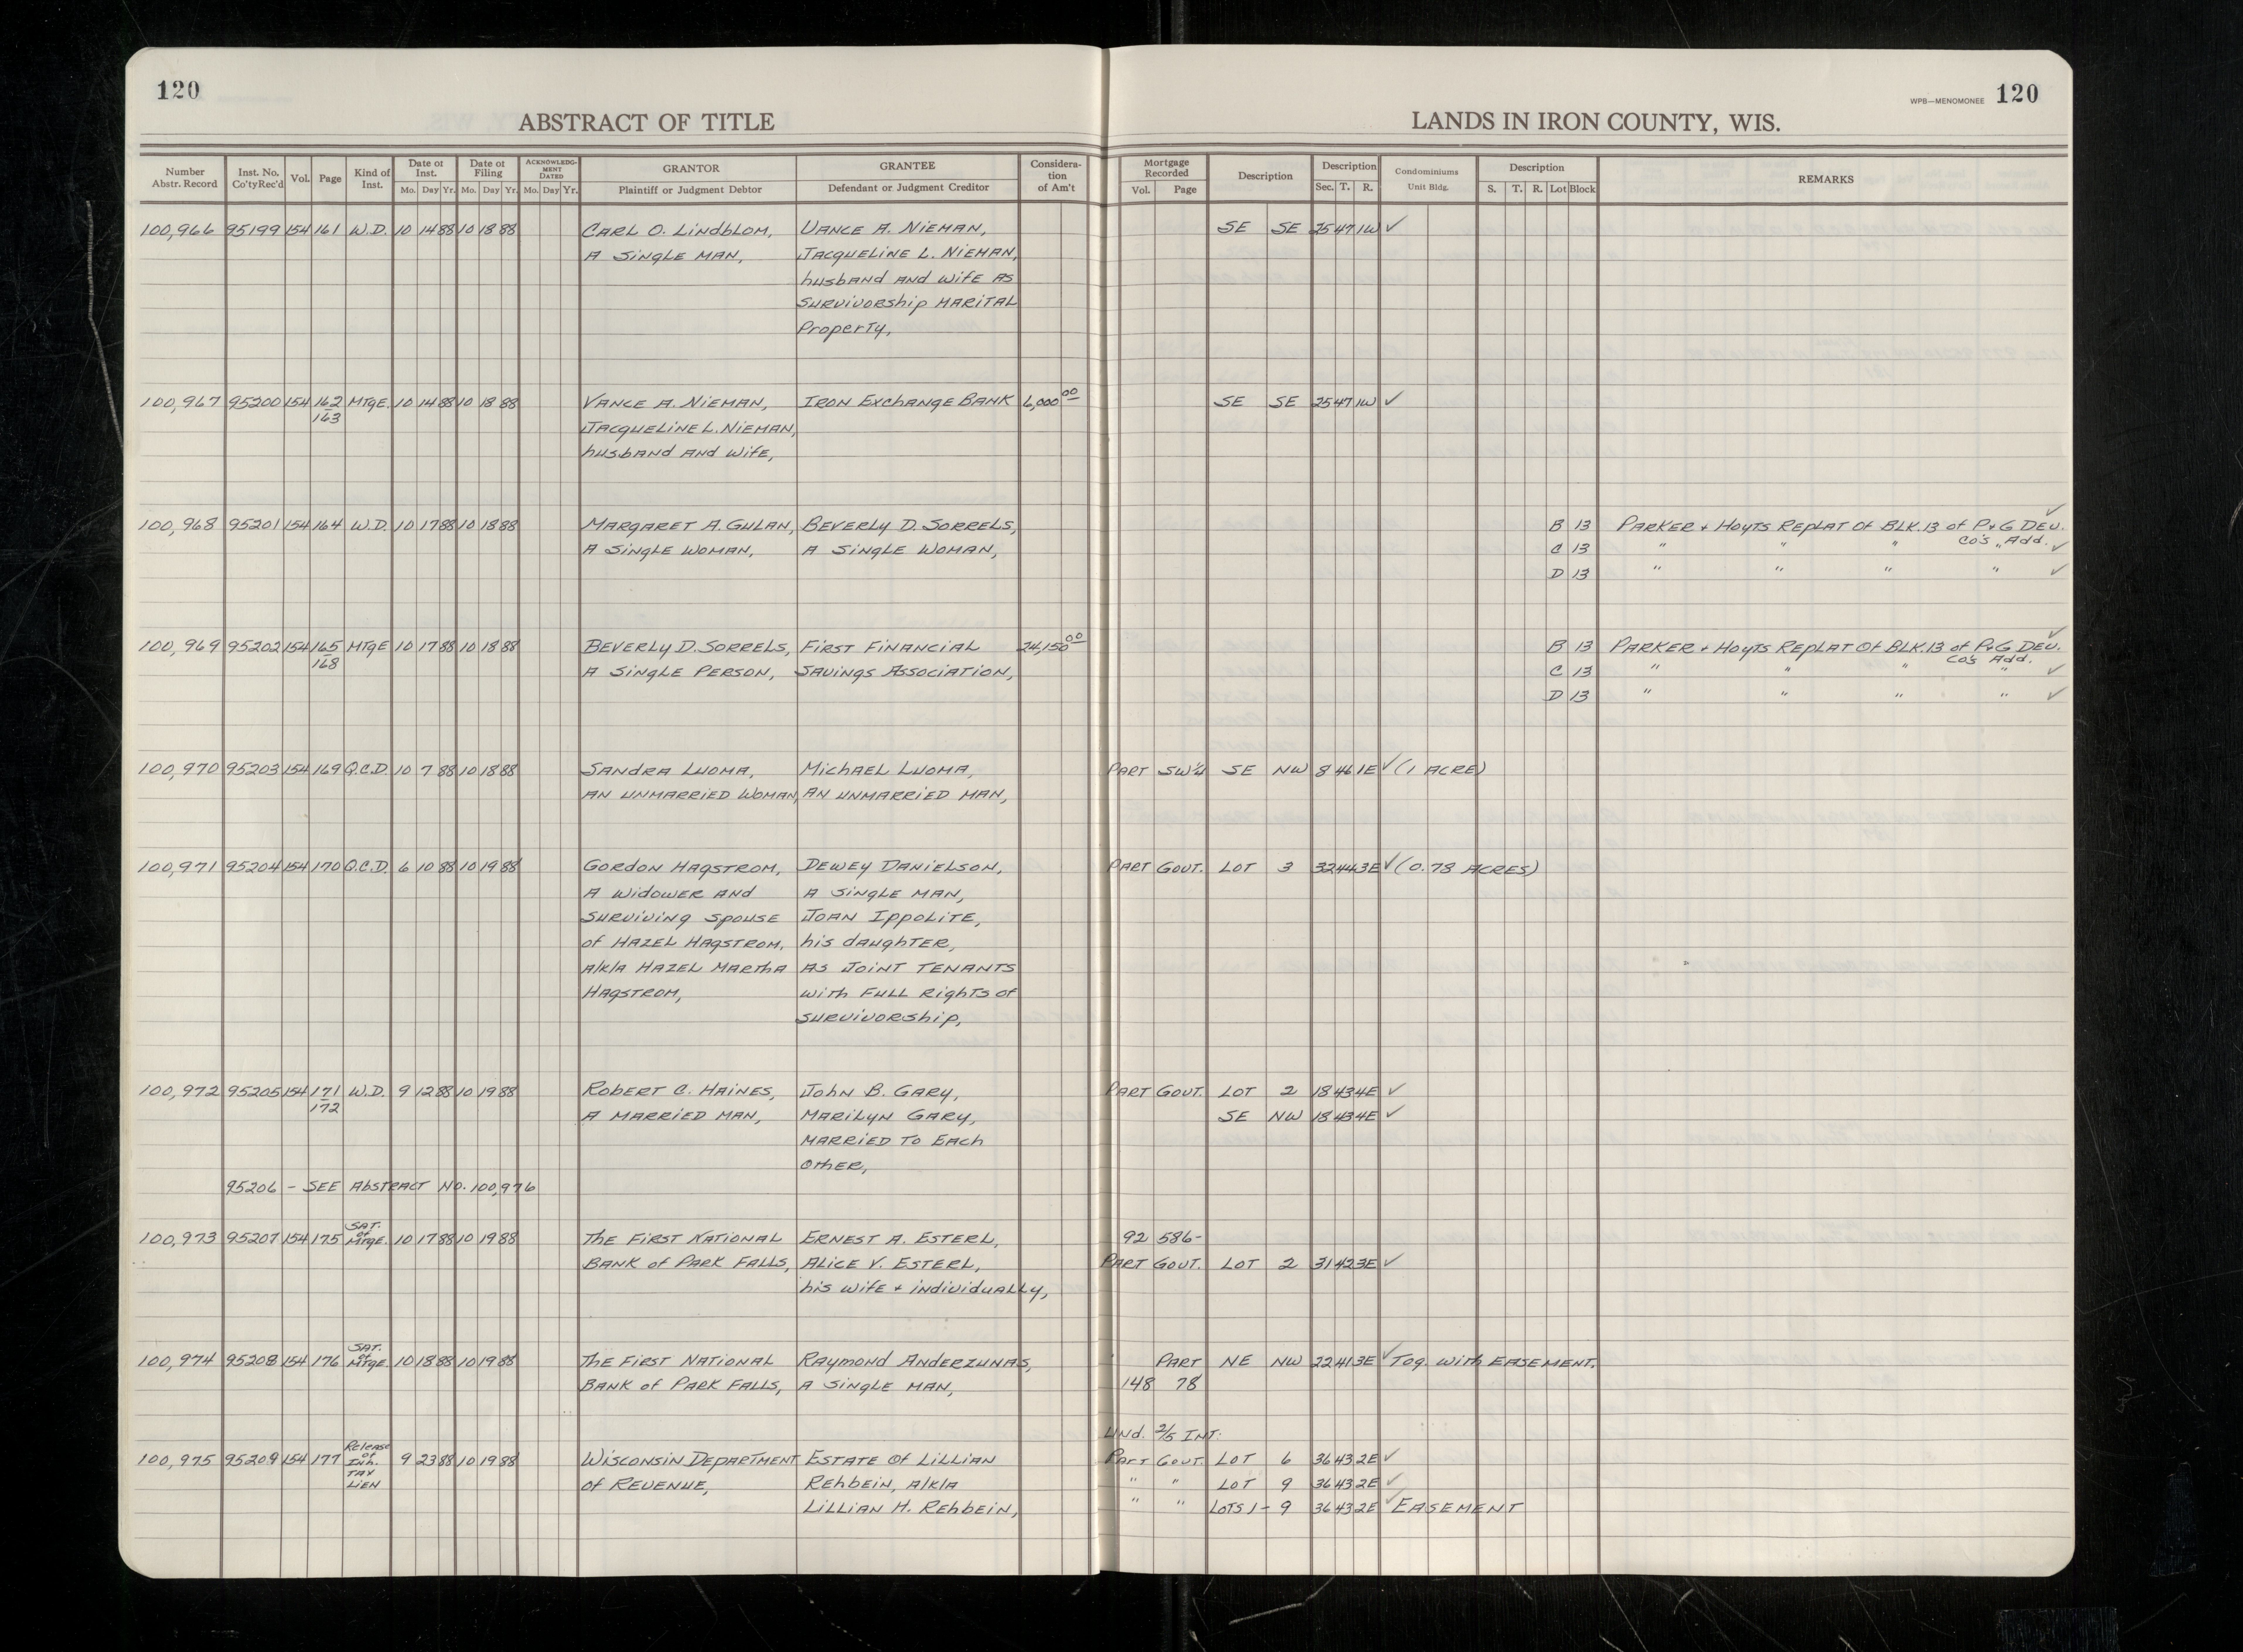 120
ABSTRACT OF TITLE
LANDS IN IRON COUNTY, WIS.
WPB—MENOMONEE 120
Number Abstr. Record | Inst. No. Co'ty Rec'd | Vol. | Page | Kind of Inst. | Date of Inst. Mo. Day Yr. | Date of Filing Mo. Day Yr. | ACKNOWLEDGMENT DATED Mo. Day Yr. | GRANTOR Plaintiff or Judgment Debtor | GRANTEE Defendant or Judgment Creditor | Consideration of Am't | Mortgage Recorded Vol. Page | Description | Description Sec. T. R. | Condominiums Unit Bldg. | Description S. T. R. Lot Block | REMARKS
100,966 95199 154 161 W.D. 10 14 88 10 18 88 Carl O. Lindblom, Vance A. Nieman, SE SE 25 47 1W ✓
A Single Man, Jacqueline L. Nieman,
husband and wife as
Survivorship Marital
Property,
100,967 95200 154 162 Mtge. 10 14 88 10 18 88 Vance A. Nieman, Iron Exchange Bank 6,000 00 SE SE 25 47 1W ✓
163 Jacqueline L. Nieman,
husband and wife,
100,968 95201 154 164 W.D. 10 17 88 10 18 88 Margaret A. Gulan, Beverly D. Sorrels, B 13 Parker + Hoyts Replat of Blk. 13 of P+G Dev. ✓
Co's Add.
A Single Woman, A Single Woman, C 13 " " " " ✓
D 13 " " " " ✓
100,969 95202 154 165 Mtge 10 17 88 10 18 88 Beverly D. Sorrels, First Financial 24,150 00 B 13 Parker + Hoyts Replat of Blk. 13 of P+G Dev. ✓
168 Co's Add.
A Single Person, Savings Association, C 13 " " " " ✓
D 13 " " " " ✓
100,970 95203 154 169 Q.C.D. 10 7 88 10 18 88 Sandra Luoma, Michael Luoma, Part SW'ly SE NW 8 46 1E ✓ (1 Acre)
An unmarried Woman, An unmarried Man,
100,971 95204 154 170 Q.C.D. 6 10 88 10 19 88 Gordon Hagstrom, Dewey Danielson, Part Govt. Lot 3 32 44 3E ✓ (0.78 Acres)
A Widower and A Single Man,
Surviving Spouse Joan Ippolite,
of Hazel Hagstrom, his daughter,
a/k/a Hazel Martha as Joint Tenants
Hagstrom, with Full Rights of
Survivorship,
100,972 95205 154 171 W.D. 9 12 88 10 19 88 Robert C. Haines, John B. Gary, Part Govt. Lot 2 18 43 4E ✓
172 A Married Man, Marilyn Gary, SE NW 18 43 4E ✓
Married to Each
Other,
95206 - See Abstract No. 100,976
100,973 95207 154 175 Sat. of Mtge. 10 17 88 10 19 88 The First National Ernest A. Esterl, 92 586-
Bank of Park Falls, Alice V. Esterl, Part Govt. Lot 2 31 42 3E ✓
his wife + individually,
100,974 95208 154 176 Sat. of Mtge. 10 18 88 10 19 88 The First National Raymond Anderzunas, Part NE NW 22 41 3E ✓ Tog. with Easement.
Bank of Park Falls, A Single Man, 148 78
Und. 2/5 Int.
100,975 95209 154 177 Release of Inh. Tax Lien 9 23 88 10 19 88 Wisconsin Department Estate of Lillian Part Govt. Lot 6 36 43 2E ✓
of Revenue, Rehbein, a/k/a " " Lot 9 36 43 2E ✓
Lillian H. Rehbein, " " Lots 1-9 36 43 2E ✓ Easement